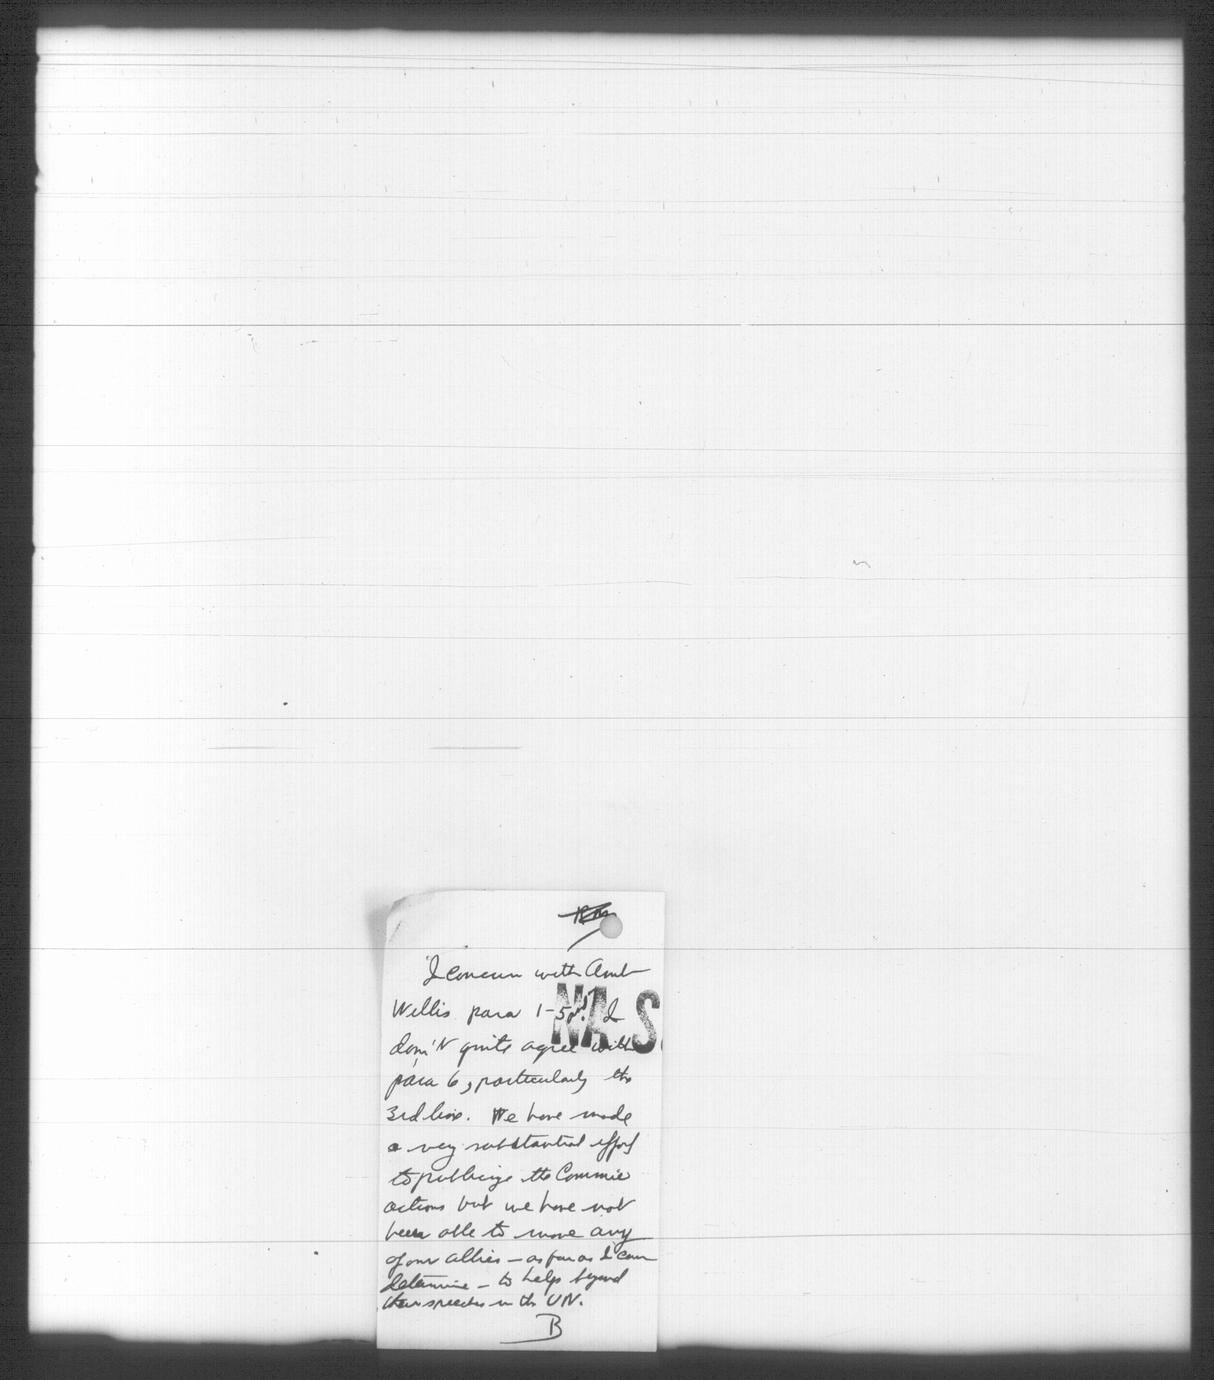 I concur with Amb
Willis para 1-5. I
don't quite agree with
para 6, particularly the
3rd line. We have made
a very substantial effort
to publicize the Commie
actions but we have not
been able to move any
of our allies – as far as I can
determine – to help beyond
their speeches in the UN.
B
NA S